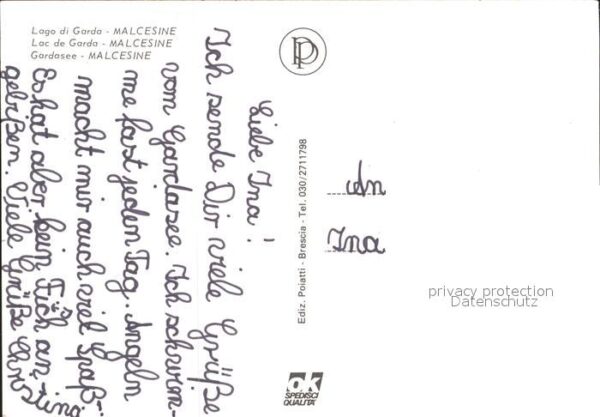 Lago di Garda - MALCESINE
Lac de Garda - MALCESINE
Gardasee - MALCESINE
PP
Liebe Ina!
Ich sende Dir viele Grüße
vom Gardasee. Ich schwim-
me fast jeden Tag. Angeln
macht mir auch viel Spaß.
Es hat aber kein Fisch an-
gebißen. Viele Grüße Christina
Ediz. Poiatti - Brescia - Tel. 030/2711798
An
Ina
privacy protection
Datenschutz
ok
SPEDISCI
QUALITÀ